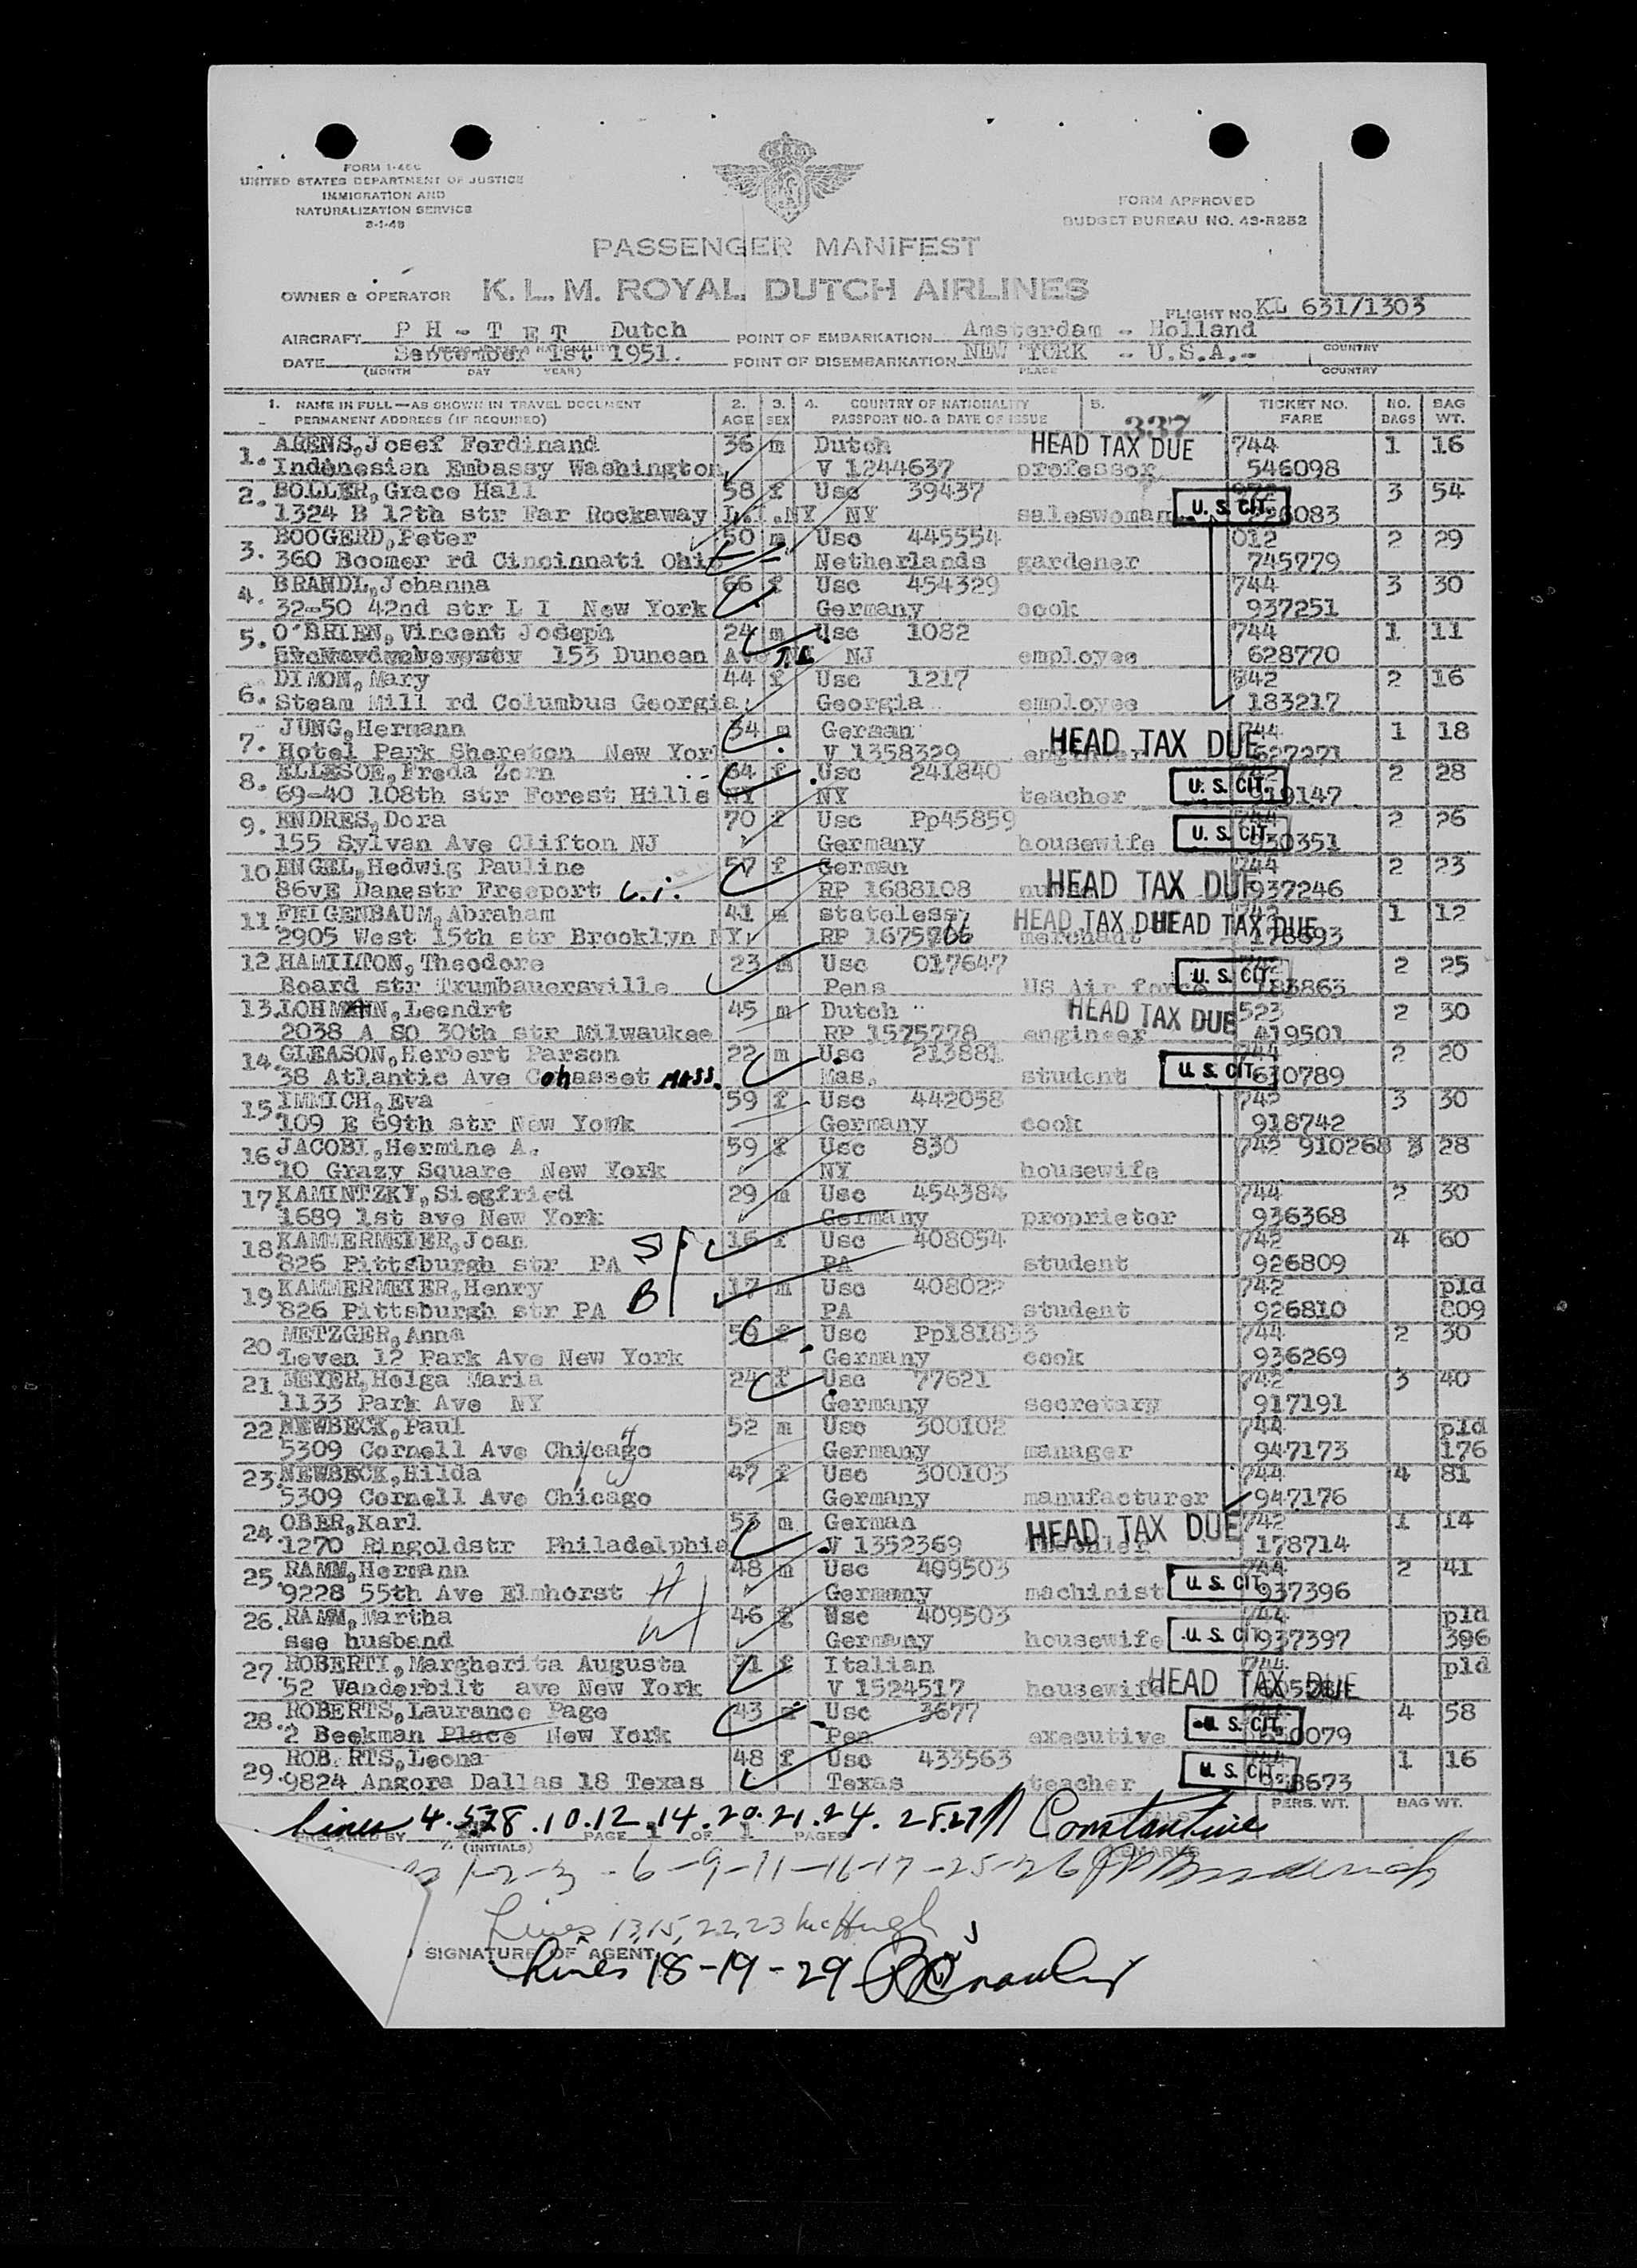 FORM I-466
UNITED STATES DEPARTMENT OF JUSTICE
IMMIGRATION AND
NATURALIZATION SERVICE
FORM APPROVED
BUDGET BUREAU NO. 43-R252
PASSENGER MANIFEST
OWNER & OPERATOR K. L. M. ROYAL DUTCH AIRLINES
FLIGHT NO. KL 631/1303
AIRCRAFT P H - T E T Dutch POINT OF EMBARKATION Amsterdam - Holland
DATE September 1st 1951. POINT OF DISEMBARKATION NEW YORK - U.S.A.-
(MONTH DAY YEAR) PLACE COUNTRY
1. NAME IN FULL—AS SHOWN IN TRAVEL DOCUMENT 2. 3. 4. COUNTRY OF NATIONALITY 5. 337 TICKET NO. NO. BAG
PERMANENT ADDRESS (IF REQUIRED) AGE SEX PASSPORT NO. & DATE OF ISSUE FARE BAGS WT.
1. AGENS, Josef Ferdinand 36 m Dutch HEAD TAX DUE 744 1 16
Indonesian Embassy Washington V 1244637 professor 546098
2. BOLLER, Grace Hall 58 f Usc 39437 3 54
1324 B 12th str Far Rockaway L.I.NY NY saleswoman U. S. CIT.
3. BOOGERD, Peter 50 m Usc 445554 012 2 29
360 Boomer rd Cincinnati Ohio Netherlands gardener 745779
4. BRANDL, Johanna 66 f Usc 454329 744 3 30
32-50 42nd str L I New York Germany cook 937251
5. O'BRIEN, Vincent Joseph 24 m Usc 1082 744 1 11
153 Duncan Ave NJ employee 628770
6. DIMON, Mary 44 f Usc 1217 2 16
Steam Mill rd Columbus Georgia. Georgia employee 183217
7. JUNG, Hermann 34 m German 744 1 18
Hotel Park Shereton New York V 1358329 engineer HEAD TAX DUE 627271
8. ELLESOE, Freda Zorn 64 f Usc 241840 2 28
69-40 108th str Forest Hills NY NY teacher U. S. CIT. 919147
9. ENDRES, Dora 70 f Usc Pp45859 744 2 26
155 Sylvan Ave Clifton NJ Germany housewife U. S. CIT. 930351
10 ENGEL, Hedwig Pauline 57 f German 744 2 23
86vE Danestr Freeport L.I. RP 1688108 HEAD TAX DUE 937246
11. FEIGENBAUM, Abraham 41 m stateless HEAD TAX DUE HEAD TAX DUE 1 12
2905 West 15th str Brooklyn NY RP 1675766 merchant 178693
12. HAMILTON, Theodore 23 m Usc 017647 2 25
Board str Trumbauersville Pens US Air force U. S. CIT. 183863
13. LOHMANN, Leendrt 45 m Dutch HEAD TAX DUE 523 2 30
2038 A SO 30th str Milwaukee RP 1575778 engineer 419501
14. GLEASON, Herbert Parson 22 m Usc 213881 744 2 20
38 Atlantic Ave Cohasset MASS. Mas. student U. S. CIT. 630789
15. IMMICH, Eva 59 f Usc 442058 742 3 30
109 E 69th str New York Germany cook 918742
16. JACOBI, Hermine A. 59 f Usc 830 742 910268 3 28
10 Grazy Square New York NY housewife
17. KAMINTZKY, Siegfried 29 m Usc 454384 744 2 30
1689 1st ave New York Germany proprietor 936368
18. KAMMERMEIER, Joan S 16 f Usc 408054 742 4 60
826 Pittsburgh str PA PA student 926809
19. KAMMERMEIER, Henry B 17 m Usc 408022 742 pld
826 Pittsburgh str PA PA student 926810 809
20. METZGER, Anna 59 f Usc Pp181833 744 2 30
Leven 12 Park Ave New York Germany cook 936269
21. MEYER, Helga Maria 24 f Usc 77621 742 3 40
1133 Park Ave NY Germany secretary 917191
22. NEWBECK, Paul 52 m Usc 300102 744 pld
5309 Cornell Ave Chicago H Germany manager 947173 176
23. NEWBECK, Hilda W 47 f Usc 300103 744 4 81
5309 Cornell Ave Chicago Germany manufacturer 947176
24. OBER, Karl 53 m German 742 1 14
1270 Ringoldstr Philadelphia V 1352369 HEAD TAX DUE 178714
25. RAMM, Hermann 48 m Usc 409503 744 2 41
9228 55th Ave Elmhorst H Germany machinist U. S. CIT. 937396
26. RAMM, Martha W 46 f Usc 409503 744 pld
see husband Germany housewife U. S. CIT. 937397 396
27. ROBERTI, Margherita Augusta 71 f Italian 744 pld
52 Vanderbilt ave New York V 1524517 housewife HEAD TAX DUE
28. ROBERTS, Laurance Page 43 m Usc 3677 4 58
2 Beekman Place New York Pen executive U. S. CIT.
29. ROB RTS, Leona 48 f Usc 433563 1 16
9824 Angora Dallas 18 Texas Texas teacher U. S. CIT. 938673
TOTALS PERS. WT. BAG WT.
Lines 4.5.7.8.10.12.14.20.21.24.28.27 Constantine
PREPARED BY (INITIALS) PAGE 1 OF 1 PAGES REMARKS
1-2-3-6-9-11-16-17-25-26
Lines 13,15,22,23 McHugh
SIGNATURE OF AGENT
Lines 18-19-29